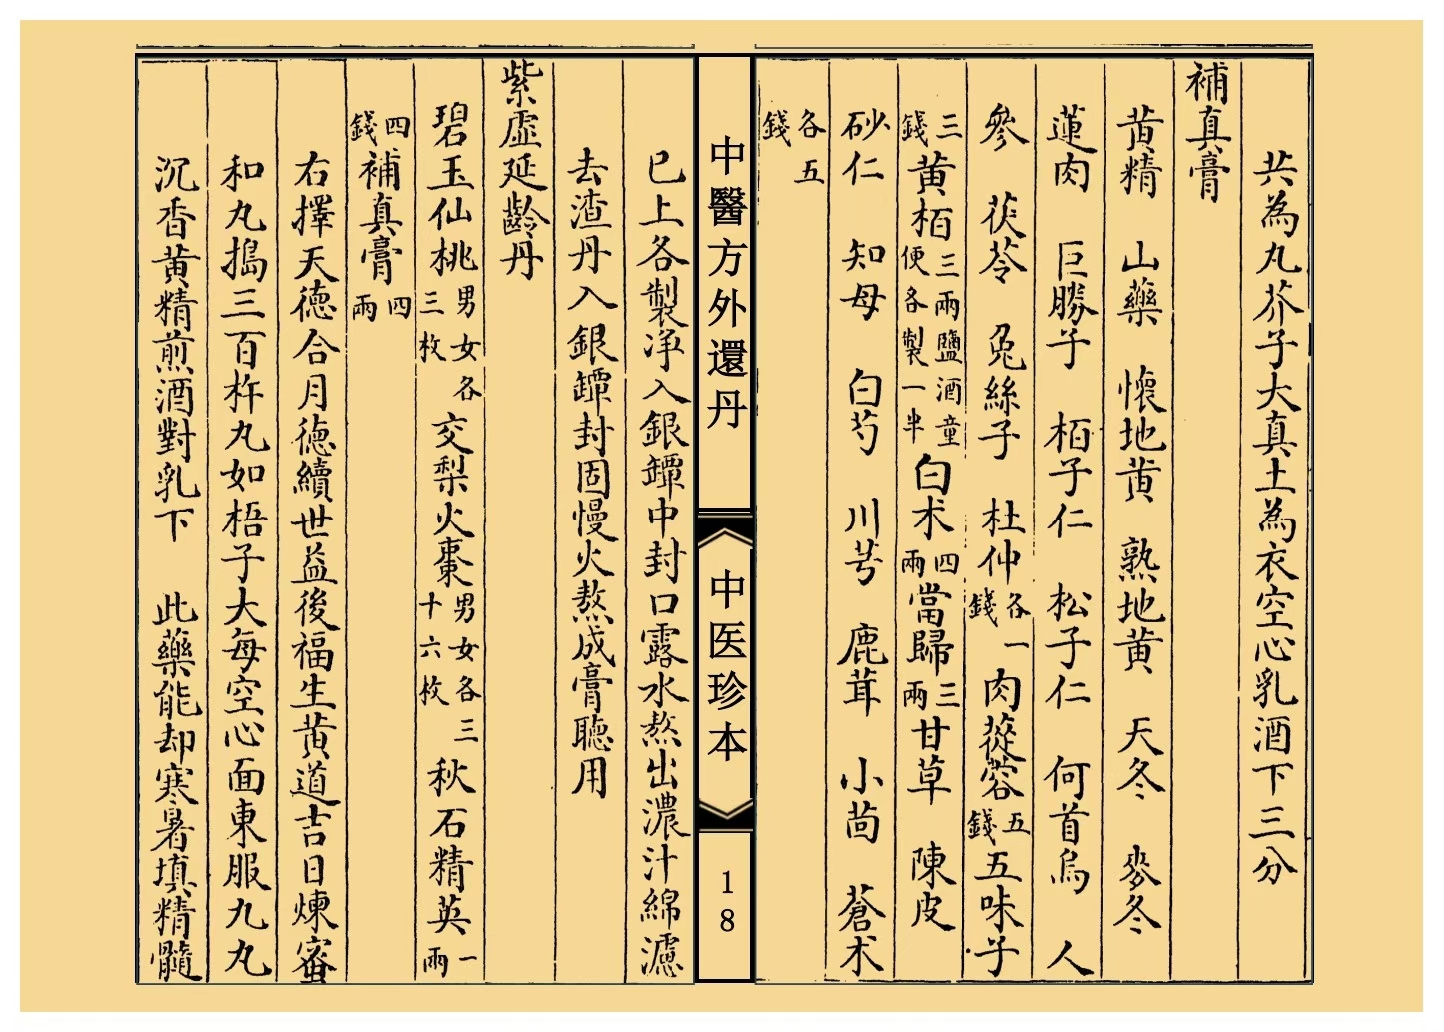 共為丸芥子大真土為衣空心乳酒下三分
補真膏
黄精 山藥 懷地黄 熟地黄 天冬 麥冬
蓮肉 巨勝子 栢子仁 松子仁 何首烏 人
參 茯苓 兔絲子 杜仲各一錢 肉蓯蓉五錢 五味子
三錢 黄栢三兩鹽酒童便各製一半 白术四兩 當歸三兩 甘草 陳皮
砂仁 知母 白芍 川芎 鹿茸 小茴 蒼术
各五錢
中醫方外還丹
中医珍本
18
已上各製净入銀罈中封口露水熬出濃汁綿濾
去渣丹入銀罈封固慢火熬成膏聽用
紫虛延齡丹
碧玉仙桃男女各三枚 交梨火棗男女各三十六枚 秋石精英一兩
四錢 補真膏四兩
右擇天德合月德續世益後福生黄道吉日煉蜜
和丸搗三百杵丸如梧子大每空心面東服九丸
沉香黄精煎酒對乳下 此藥能却寒暑填精髓